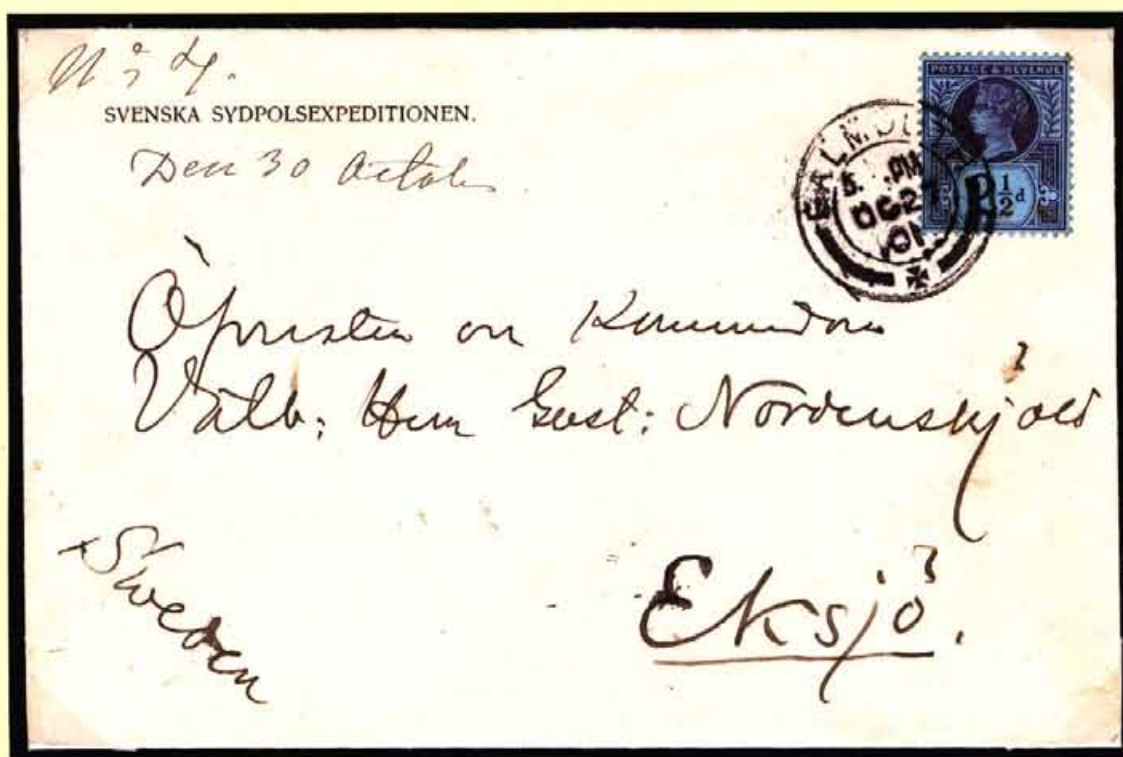 No 4.
SVENSKA SYDPOLSEXPEDITIONEN.
Den 30 October
POSTAGE & REVENUE
2½d
FALMOUTH
PM
OC 2
01
Öfversten och Kommendören
Välb: Herr Gust: Nordenskjöld
Eksjö.
Sweden